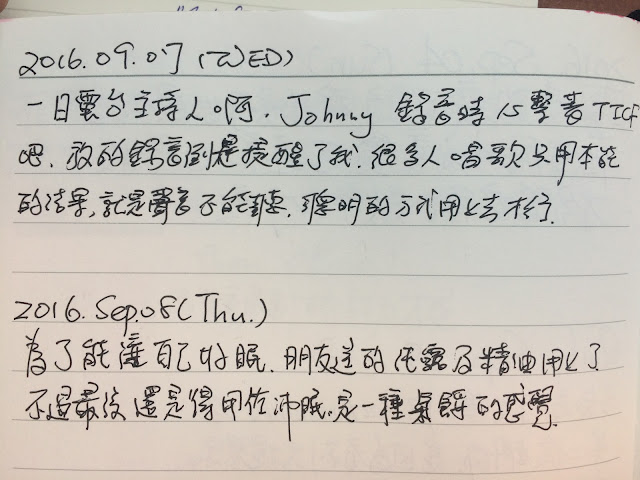 2016.09.07 (WED)
一日電台主持人啊. Johnny 錄音時心繫著TICF
吧. 放的錄音倒是提醒了我. 很多人唱歌只用本能
的結果, 就是聲音不能聽. 聰明的方式用上去才行.
2016. Sep.08(Thu.)
為了能讓自己好眠. 朋友送的花露及精油用上了
不過最後還是得用佐沛眠. 是一種氣餒的感覺.